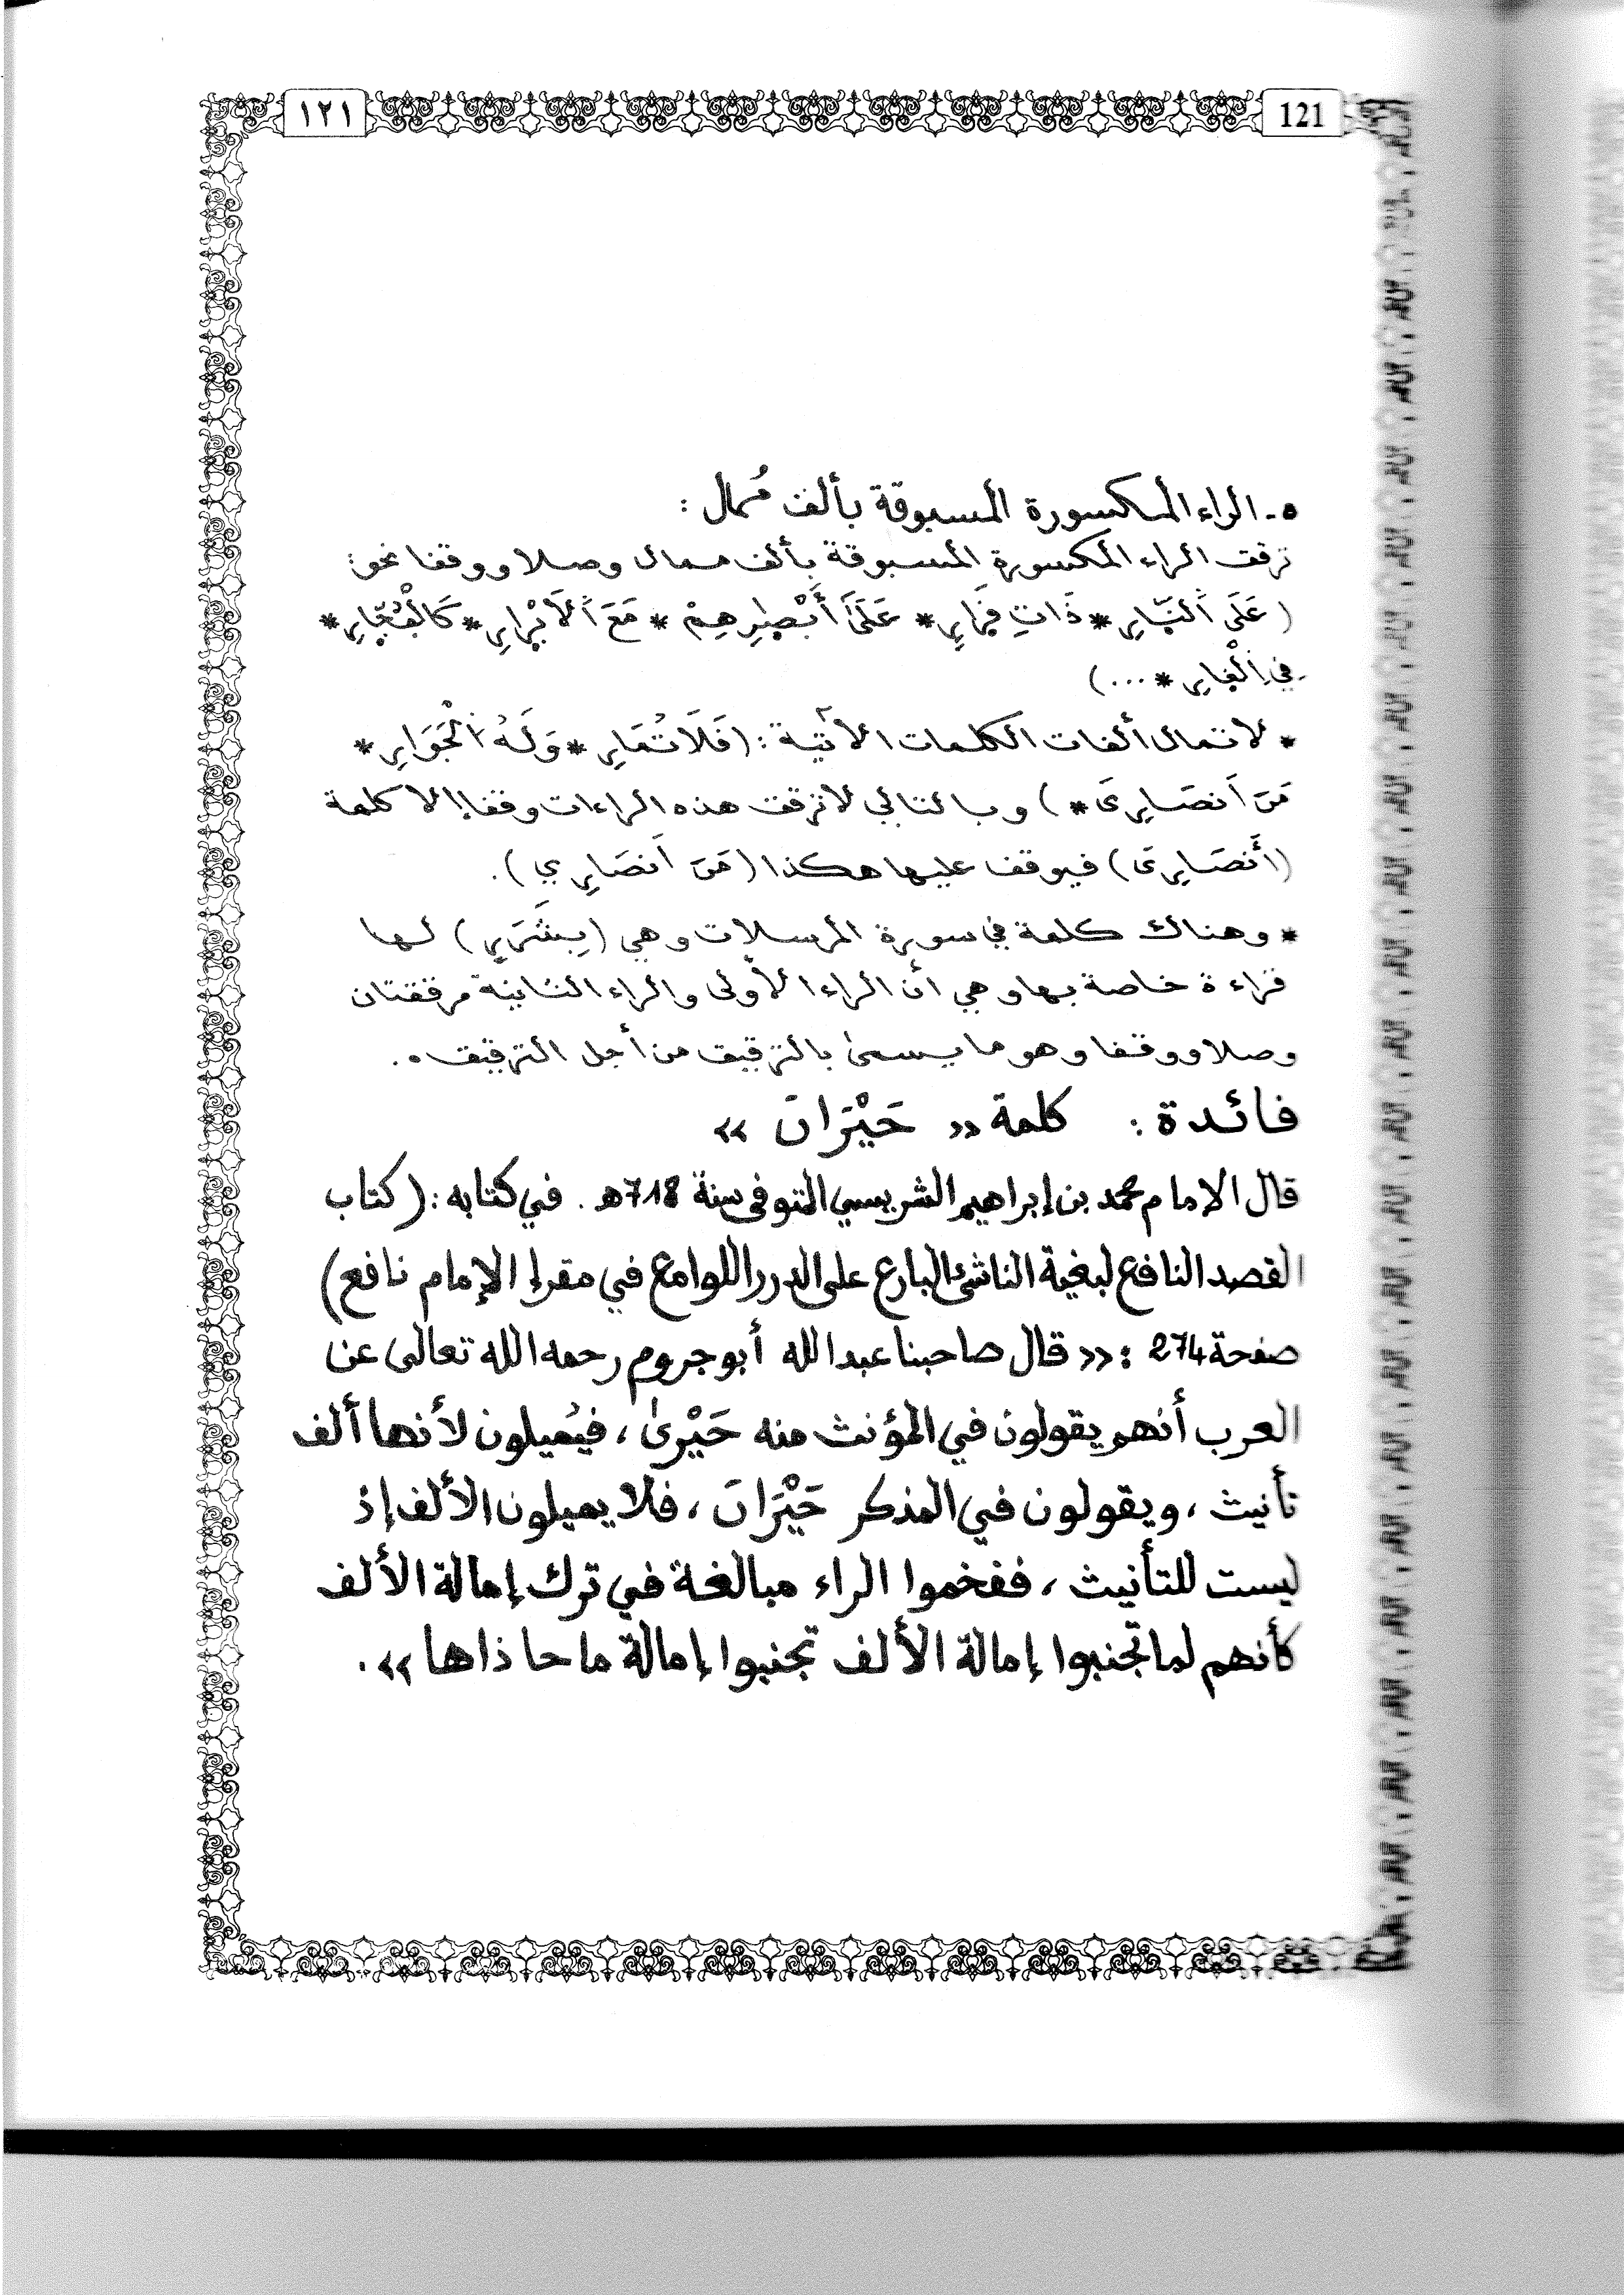 ١٢١ 121
٥- الراء المكسورة المسبوقة بألف مُمال :
ترقق الراء المكسورة المسبوقة بألف ممال وصلا ووقفا نحو:
( عَلَى اَلنّ۪ارِ * ذَاتِ قَر۪ارِ * عَلَىٰٓ أَبْصٰ۪رِهِمْ * مَعَ اَلَابْر۪ارِ * كَالْفُجّ۪ارِ *
فِي اِلْغ۪ارِ * ...)
* لا تمال ألفات الكلمات الآتية : (فَلَا تُمَارِ * وَلَهُ اُلْجَوَارِ *
مَنَ اَنصَارِىَ * ) وبالتالي لا ترقق هذه الراءات وقفا إلا كلمة
(أَنصَارِىَ) فيوقف عليها هكذا (مَنَ اَنصَارِي ).
* وهناك كلمة في سورة المرسلات وهي (بِشَرَرٍ) لها
قراءة خاصة بها وهي أن الراء الأولى والراء الثانية مرققتان
وصلا ووقفا وهو ما يسمىٰ بالترقيق من أجل الترقيق ٥.
فائدة : كلمة « حَيْرَانَ »
قال الإمام محمد بن إبراهيم الشريسي المتوفى سنة 718هـ . في كتابه : (كتاب
القصد النافع لبغية الناشئ البارع على الدرر اللوامع في مقرإ الإمام نافع)
صفحة 274 : « قال صاحبنا عبد الله أبو جروم رحمه الله تعالى عن
العرب أنهم يقولون في المؤنث منه حَيْرىٰ ، فيُميلون لأنها ألف
تأنيث ، ويقولون في المذكر حَيْرَانَ ، فلا يميلون الألف إذ
ليست للتأنيث ، ففخموا الراء مبالغة في ترك إمالة الألف
كأنهم لما تجنبوا إمالة الألف تجنبوا إمالة ما حاذاها ».